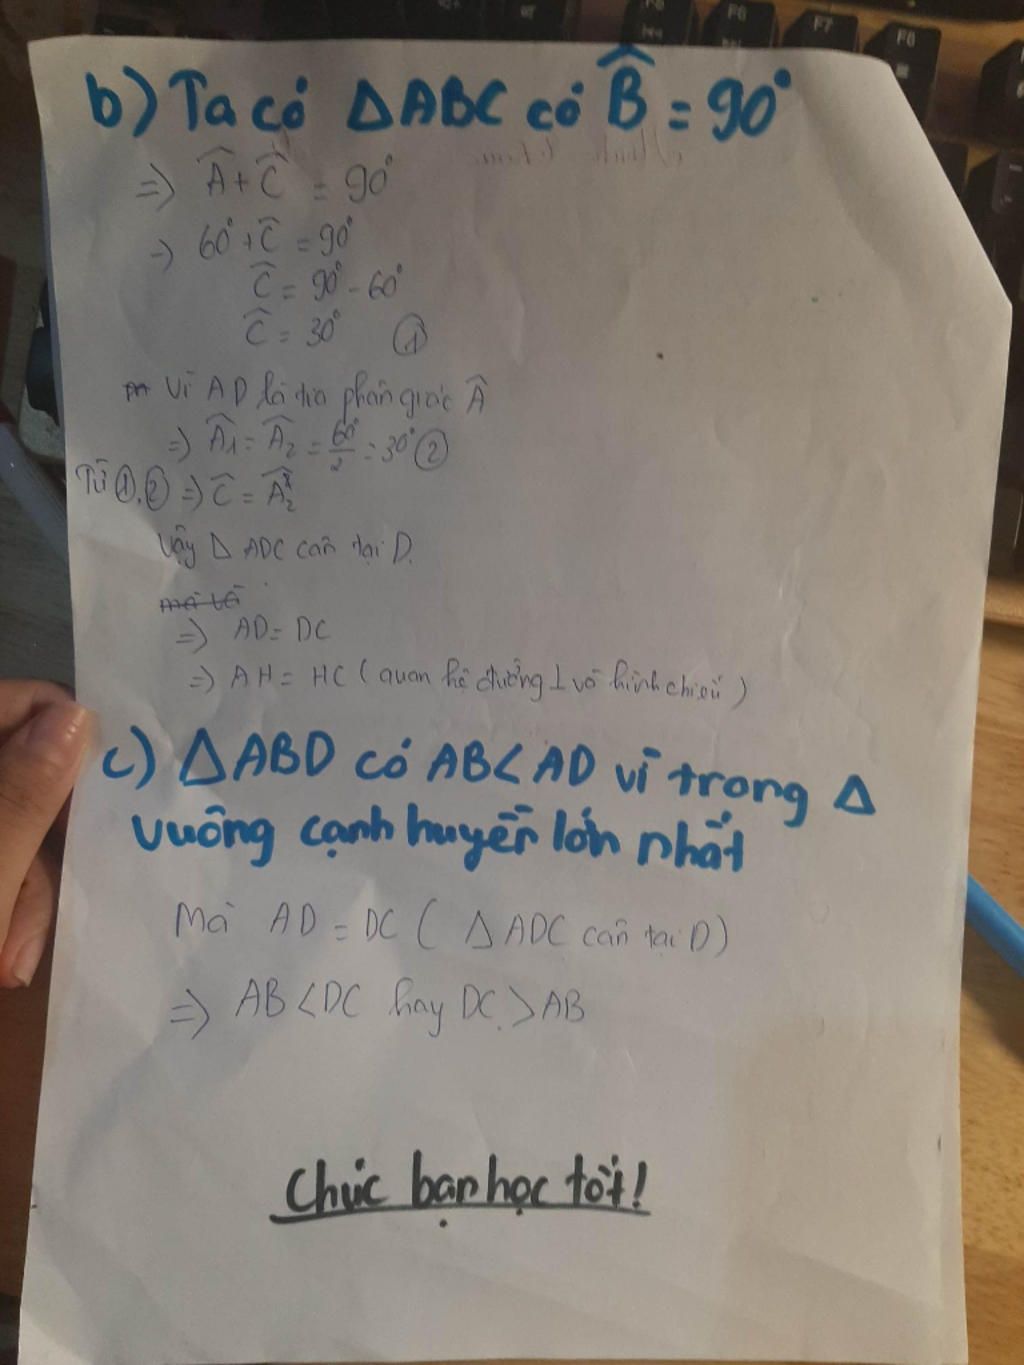 b) Ta có ΔABC có B̂ = 90°
=> Â + Ĉ = 90°
=> 60° + Ĉ = 90°
Ĉ = 90° - 60°
Ĉ = 30° ①
Vì AD là tia phân giác Â
=> Â₁ = Â₂ = 60°/2 = 30° ②
Từ ①, ② => Ĉ = Â₂
Vậy Δ ADC cân tại D.
=> AD = DC
=> AH = HC (quan hệ đường ⊥ và hình chiếu)
c) ΔABD có AB < AD vì trong Δ
vuông cạnh huyền lớn nhất
Mà AD = DC ( Δ ADC cân tại D)
=> AB < DC hay DC > AB
Chúc bạn học tốt!
F6
F7
F8